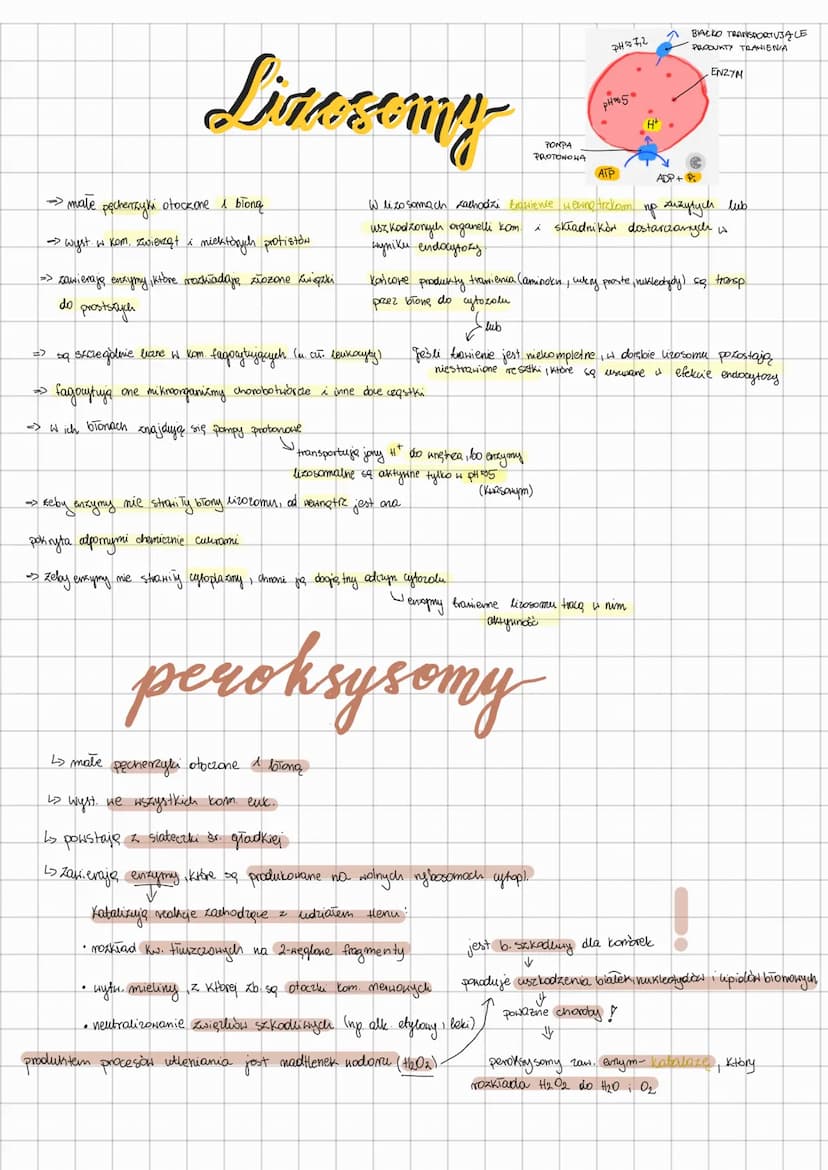 Lizosomy
pH≈7,2
BIAŁKO TRANSPORTUJĄCE
PRODUKTY TRAWIENIA
ENZYM
pH≈5
H⁺
POMPA
PROTONOWA
ATP
ADP + Pi
=> małe pęcherzyki otoczone 1 błoną
-> wyst w kom. zwierząt i niektórych protistów
=> zawierają enzymy, które rozkładają złożone związki
do prostszych
W lizosomach zachodzi trawienie wewnątrzkom. np zużytych lub
uszkodzonych organelli kom i składników dostarczanych w
wyniku endocytozy.
Końcowe produkty trawienia (aminokw, cukry proste, nukleotydy) są transp
przez błonę do cytozolu
lub
Jeśli trawienie jest niekompletne, w obrębie lizosomu pozostają
niestrawione resztki, które są usuwane w efekcie endocytozy
=> są szczególnie liczne w kom. fagocytujących (u czł. leukocyty)
=> fagocytują one mikroorganizmy chorobotwórcze i inne obce cząstki
-> w ich błonach znajdują się pompy protonowe
transportują jony H⁺ do wnętrza, bo enzymy
lizosomalne są aktywne tylko w pH≈5
(kwasowym)
-> żeby enzymy nie strawiły błony lizozomu, od wewnątrz jest ona
pokryta odpornymi chemicznie cukrami
-> żeby enzymy nie strawiły cytoplazmy, chroni ją obojętny odczyn cytozolu
enzymy trawienne lizosomu tracą w nim
aktywność
peroksysomy
↳ małe pęcherzyki otoczone 1 błoną
↳ wyst. we wszystkich kom. euk.
↳ powstają z siateczki śr. gładkiej
↳ zawierają enzymy, które są produkowane na wolnych rybosomach cytopl.
katalizują reakcje zachodzące z udziałem tlenu:
• rozkład kw. tłuszczowych na 2-węglowe fragmenty
• wytw. mieliny, z której zb. są otoczki kom. nerwowych
• neutralizowanie związków szkodliwych (np alk. etylowy, leki)
produktem procesów utleniania jest nadtlenek wodoru (H₂O₂)
!
jest b. szkodliwy dla komórek
powoduje uszkodzenia białek, nukleotydów i lipidów błonowych
poważne choroby!
peroksysomy zaw. enzym - katalazę, który
rozkłada H₂O₂ do H₂O i O₂